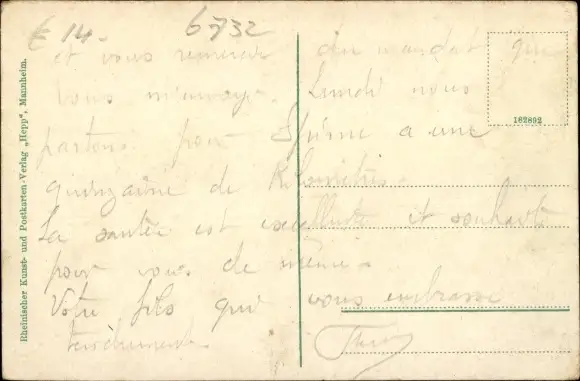 € 14.- 6732
et vous remercie du mandat que
vous m'envoyez. Lundi nous
partons pour a une
quinzaine de Kilomètres.
La santée est excellente et souhaite
pour vous de même.
Votre fils qui vous embrasse
tendrement.
Rheinischer Kunst- und Postkarten-Verlag „Hepp", Mannheim.
182892